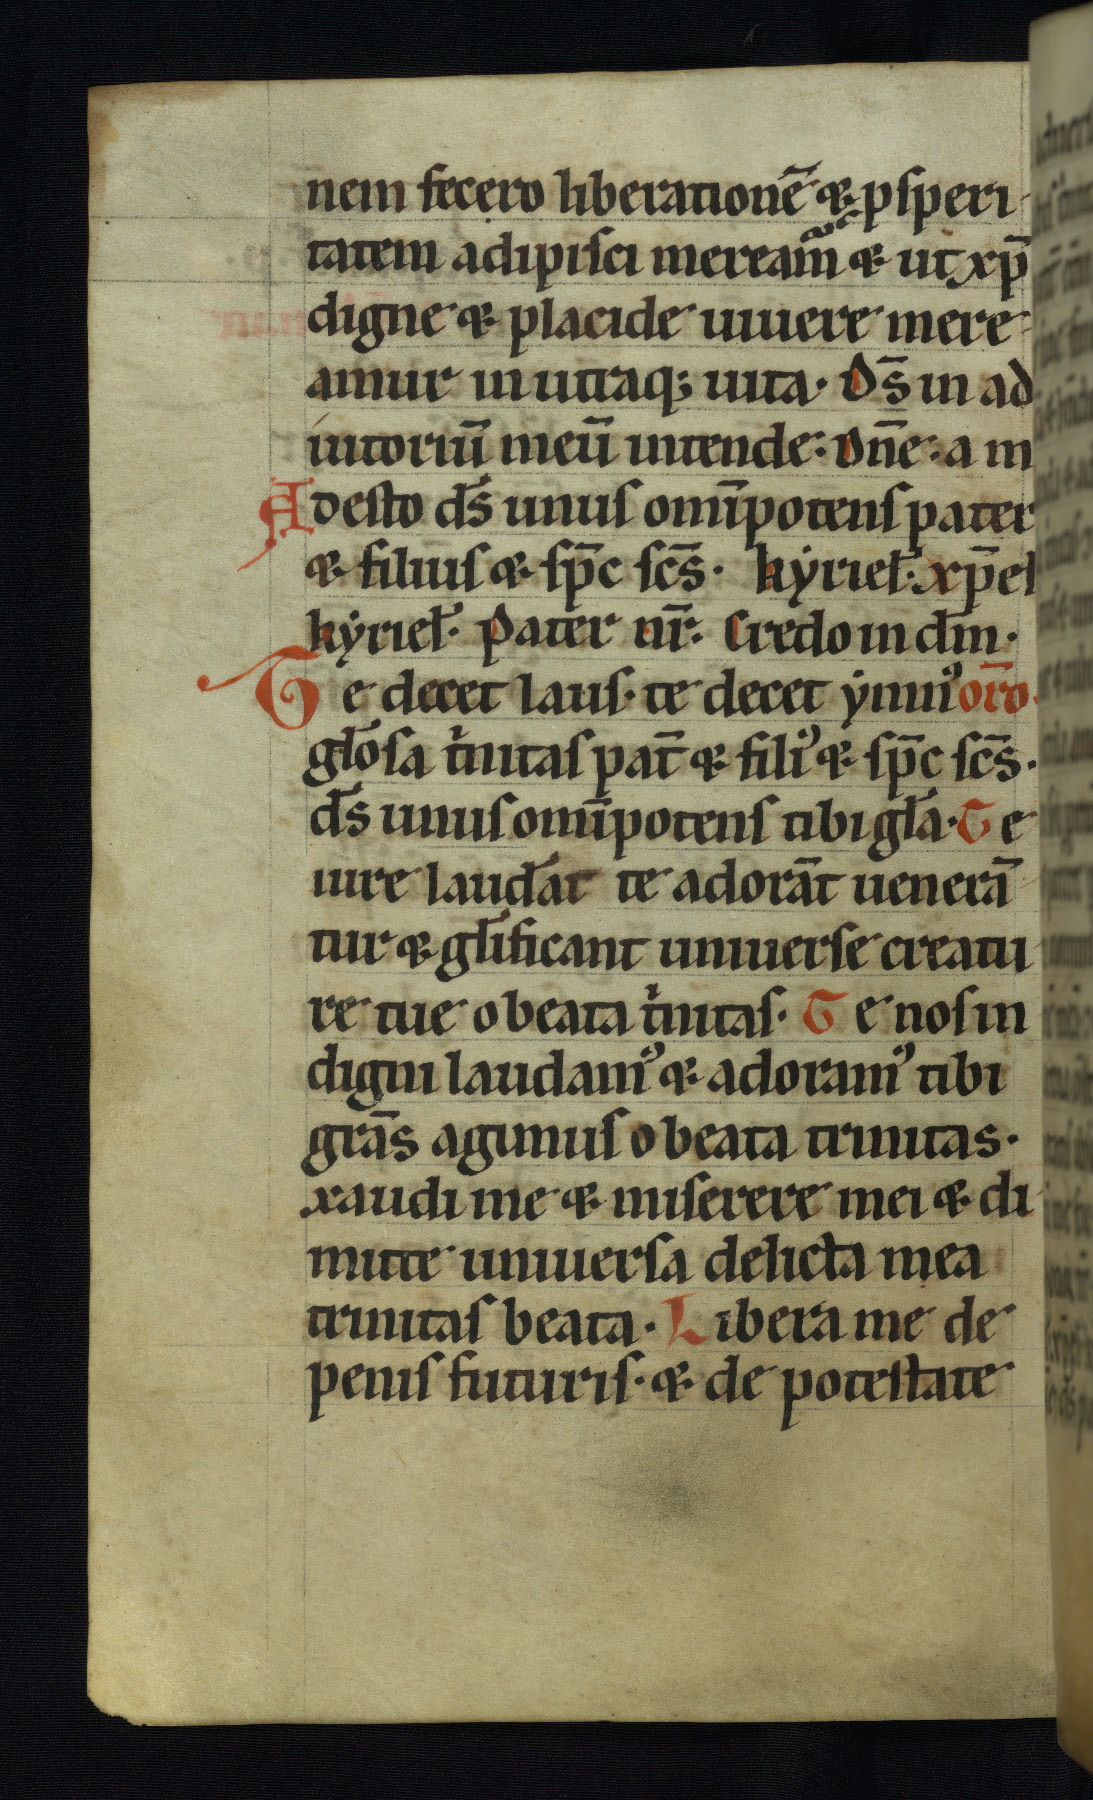 nem fecero liberationē & ꝑſperi
tatem adipiſci mereaᷓm & ut xp̄
digne & placide uiuere mere
amur in utraq; uita· Ds̄ in ad
iutoriū meū intende· Dn̄e· a m
Adeſto ds̄ unuſ om̄ipotenſ pater
& filiuſ & ſp̄c ſcs̄· kẏriel̄· xp̄el
kẏriel̄· Pater nr̄· Credo in dm̄·
Te decet lauſ· te decet ẏmnꝰ oro̅·
gl̄oſa tͥnitaſ pat̄ & filiꝰ & ſp̄c ſcs̄·
ds̄ unuſ om̄ipotenſ tibi gl̄a· Te
iure laudāt te adorāt uenerā
tur & gl̄ificant uniuerſe creatu
re tue o beata tͥnitaſ· Te noſ in
digni laudamꝰ & adoramꝰ tibi
grās agimuſ o beata trinitas·
xaudi me & miſerere mei & di
mitte uniuerſa delicta mea
trinitaſ beata· Libera me de
peniſ futuriſ· & de poteſtate